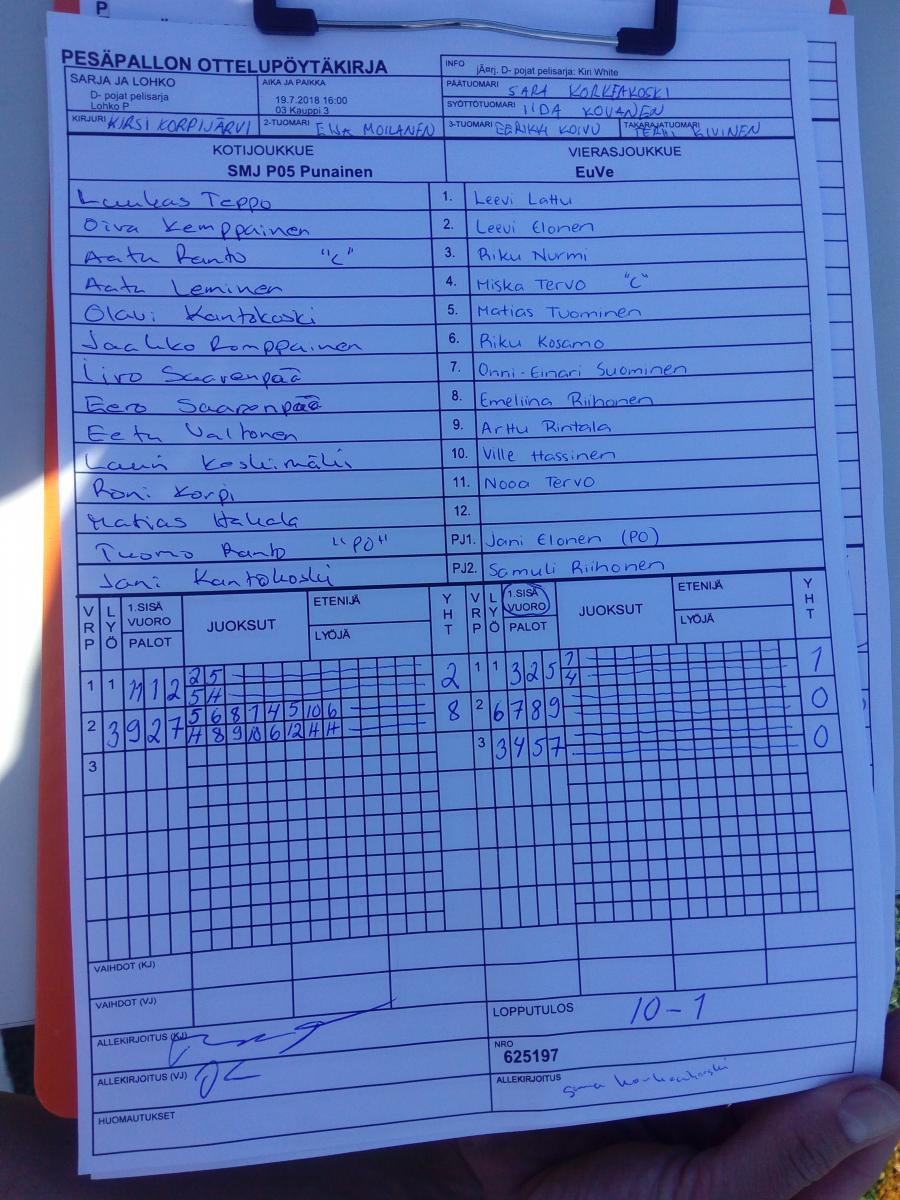 PESÄPALLON OTTELUPÖYTÄKIRJA
SARJA JA LOHKO
D- pojat pelisarja
Lohko P
AIKA JA PAIKKA
19.7.2018 16:00
03 Kauppi 3
INFO jÄ¤rj. D- pojat pelisarja: Kiri White
PÄÄTUOMARI SARA KORKEAKOSKI
SYÖTTÖTUOMARI IIDA KOVANEN
KIRJURI KIRSI KORPIJÄRVI
2-TUOMARI MOILANEN
3-TUOMARI EERIKKI KOIVU
TAKARAJATUOMARI KIVINEN
KOTIJOUKKUE
SMJ P05 Punainen
VIERASJOUKKUE
EuVe
Luukas Teppo 1. Leevi Lattu
Oiva Kemppainen 2. Leevi Elonen
Aatu Ranto "C" 3. Riku Nurmi
Aatu Leminen 4. Miska Tervo "C"
Olavi Kantokoski 5. Matias Tuominen
Jaakko Romppainen 6. Riku Kosamo
Iivo Saarenpää 7. Onni-Einari Suominen
Eero Saarenpää 8. Emeliina Riihonen
Eetu Valtonen 9. Arttu Rintala
Lauri Koskimäki 10. Ville Hassinen
Roni Korpi 11. Nooa Tervo
Matias Hakala 12.
Tuomo Ranto "PO" PJ1. Jani Elonen (PO)
Jani Kantokoski PJ2. Samuli Riihonen
VRP LYÖ 1.SISÄ VUORO PALOT JUOKSUT ETENIJÄ LYÖJÄ YHT
VRP LYÖ 1.SISÄ VUORO PALOT JUOKSUT ETENIJÄ LYÖJÄ YHT
1 1 11 1 2 2 5 2
5 H
2 3 9 2 7 5 6 8 7 4 5 10 6 8
H 8 9 10 6 12 H H
3
1 1 3 2 5 1
4
2 6 7 8 9 0
3 3 4 5 7 0
VAIHDOT (KJ)
VAIHDOT (VJ)
LOPPUTULOS 10-1
ALLEKIRJOITUS (KJ)
NRO
625197
ALLEKIRJOITUS (VJ)
ALLEKIRJOITUS Sara Korkeakoski
HUOMAUTUKSET